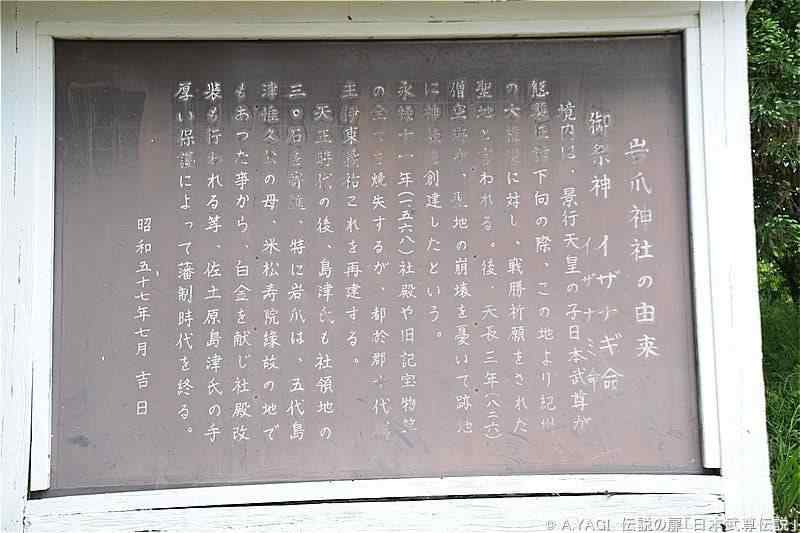 岩爪神社の由来
御祭神 イザナギ命
イザナミ命
境内は、景行天皇の子日本武尊が
熊襲征討下向の際、この地より紀州
の大 に対し、戦勝祈願をされた
聖地と言われる。後、天長三年(八二六)
僧 が、聖地の崩壊を憂いて跡地
に神 創建したという。
永禄十一年(一五六八)社殿や旧記宝物等
の全てを焼失するが、都於郡十代
主伊東義祐これを再建する。
天正時代の後、島津氏も社領地の
三〇石を寄進、特に岩爪は、五代島
津惟久公の母、米松寿院縁故の地で
もあった事から、白金を献じ社殿改
装も行われる等、佐土原島津氏の手
厚い保護によって藩制時代を終る。
昭和五十七年七月 吉日
© A.YAGI 伝説の扉「日本武尊伝説」